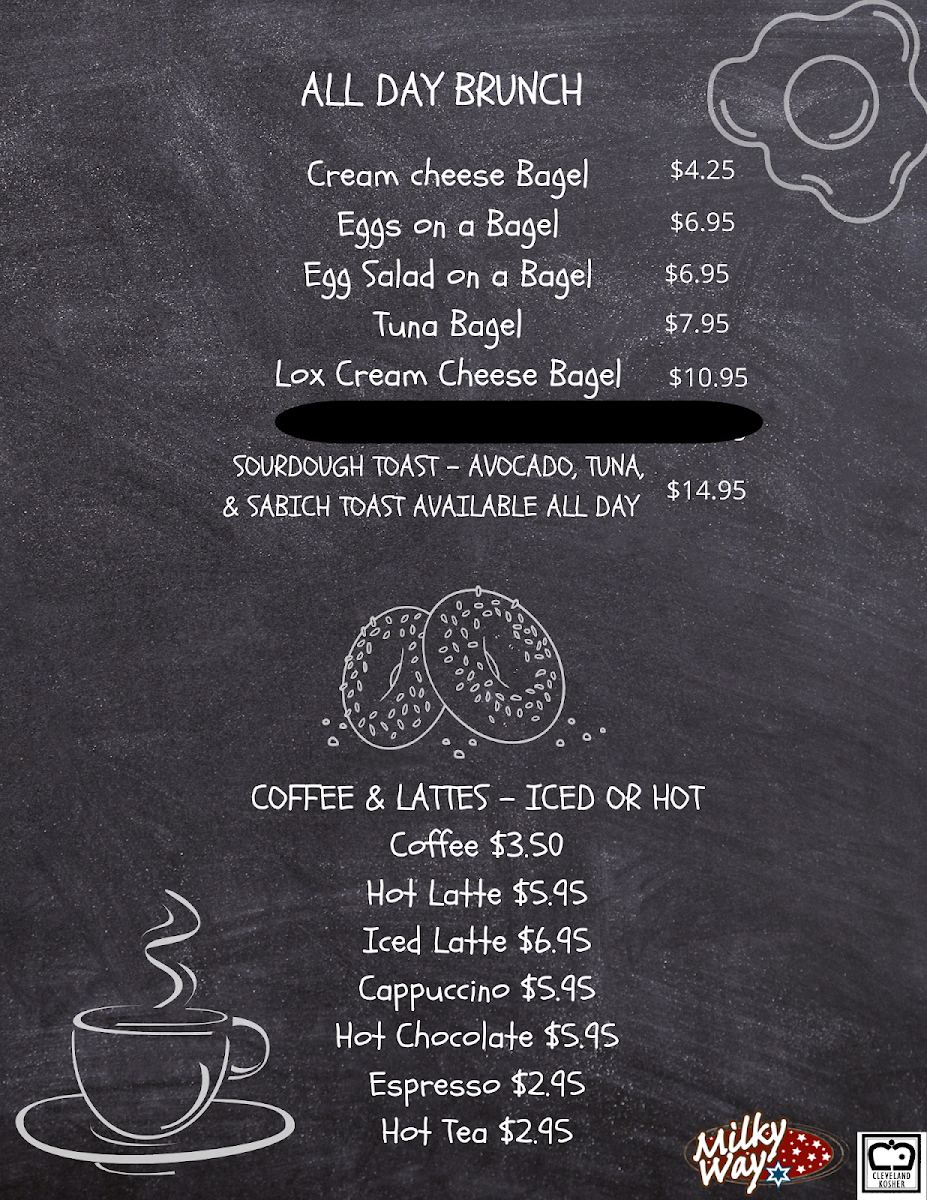 ALL DAY BRUNCH
Cream cheese Bagel $4.25
Eggs on a Bagel $6.95
Egg Salad on a Bagel $6.95
Tuna Bagel $7.95
Lox Cream Cheese Bagel $10.95
SOURDOUGH TOAST – AVOCADO, TUNA,
& SABICH TOAST AVAILABLE ALL DAY $14.95
COFFEE & LATTES – ICED OR HOT
Coffee $3.50
Hot Latte $5.95
Iced Latte $6.95
Cappuccino $5.95
Hot Chocolate $5.95
Espresso $2.95
Hot Tea $2.95
Milky
Way
CLEVELAND
KOSHER